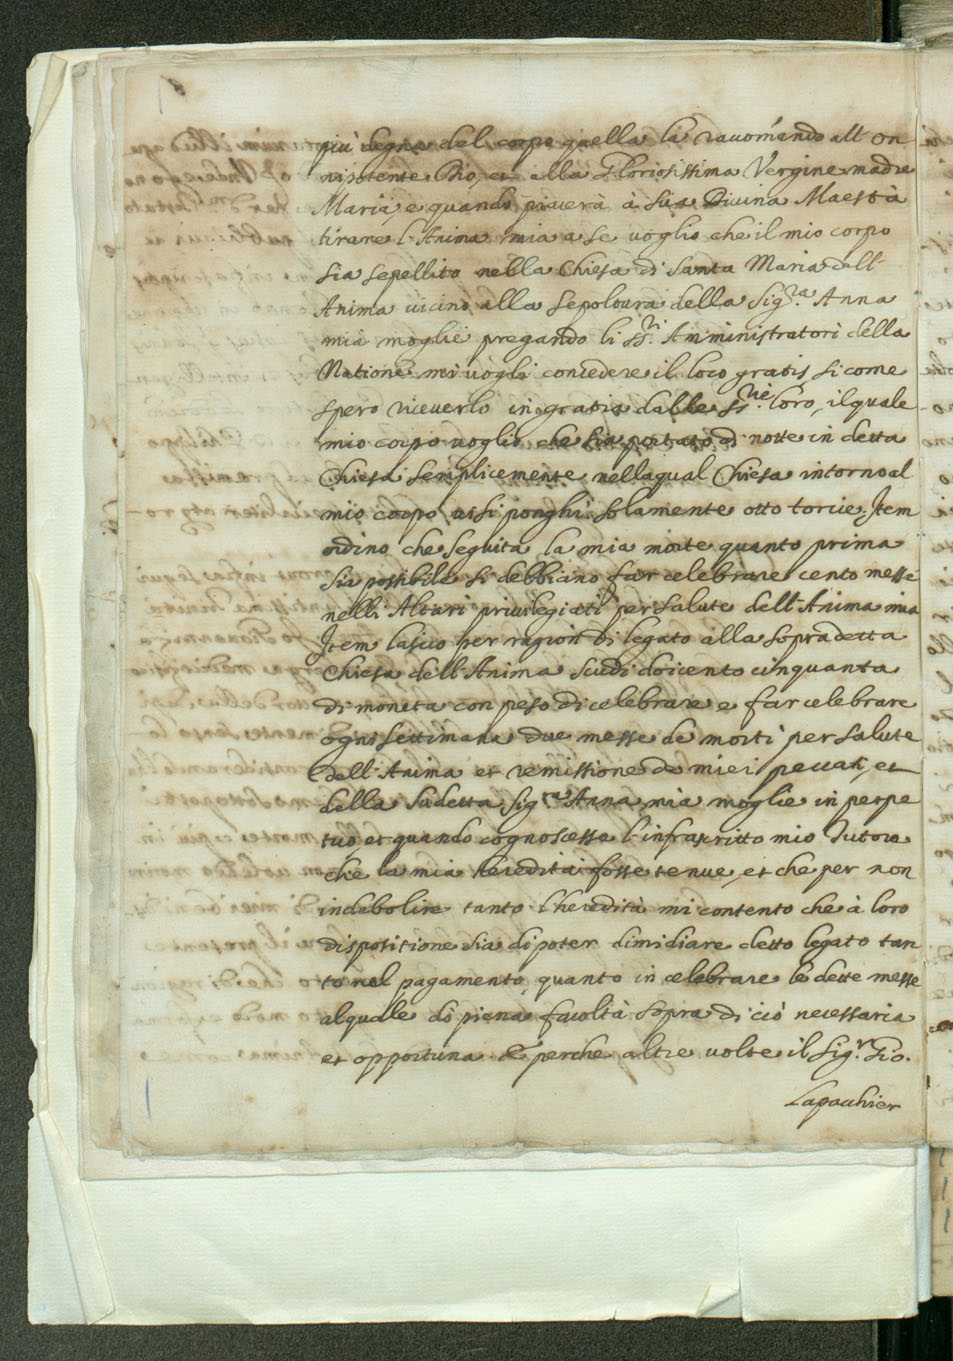 più degna del corpo quella la raccom̃ando all' on
nipotente Dio, et alla Gloriosissima Vergine madre
Maria, e quando piacerà à Sua Divina Maestà
tirare l'Anima mia a se voglio che il mio corpo
sia sepellito nella Chiesa di Santa Maria dell'
Anima vicino alla sepoltura della Sig.ra Anna
mia moglie pregando li SS.ri Amministratori della
Natione mi vogli concedere il loco gratis, si come
spero riceverlo in gratia dalle SS.rie loro, il quale
mio corpo voglio che sia portato di notte in detta
Chiesa semplicemente nella qual Chiesa intorno al
mio corpo vi si ponghi solamente otto torcie. Item
ordino che seguita la mia morte quanto prima
sia possibile si debbiano far celebrare cento messe
nelli Altari privilegiati per salute dell'Anima mia
Item lascio per ragion di legato alla sopradetta
Chiesa dell'Anima scudi doicento cinquanta
di moneta con peso di celebrare e far celebrare
ogni settimana due messe de morti per salute
dell'Anima et remissione de miei peccati, et
della sudetta Sig.ra Anna mia moglie in perpe
tuo et quando cognoscesse l'infrascritto mio Tutore
che la mia heredità fosse tenue, et che per non
indebolire tanto l'heredità mi contento che à loro
dispositione sia di poter dimidiare detto legato tan
to nel pagamento, quanto in celebrare le dette messe
al quale dò piena facoltà sopra di ciò necessaria
et opportuna. E perche altre volte il Sig.r Gio.
Lapacchier